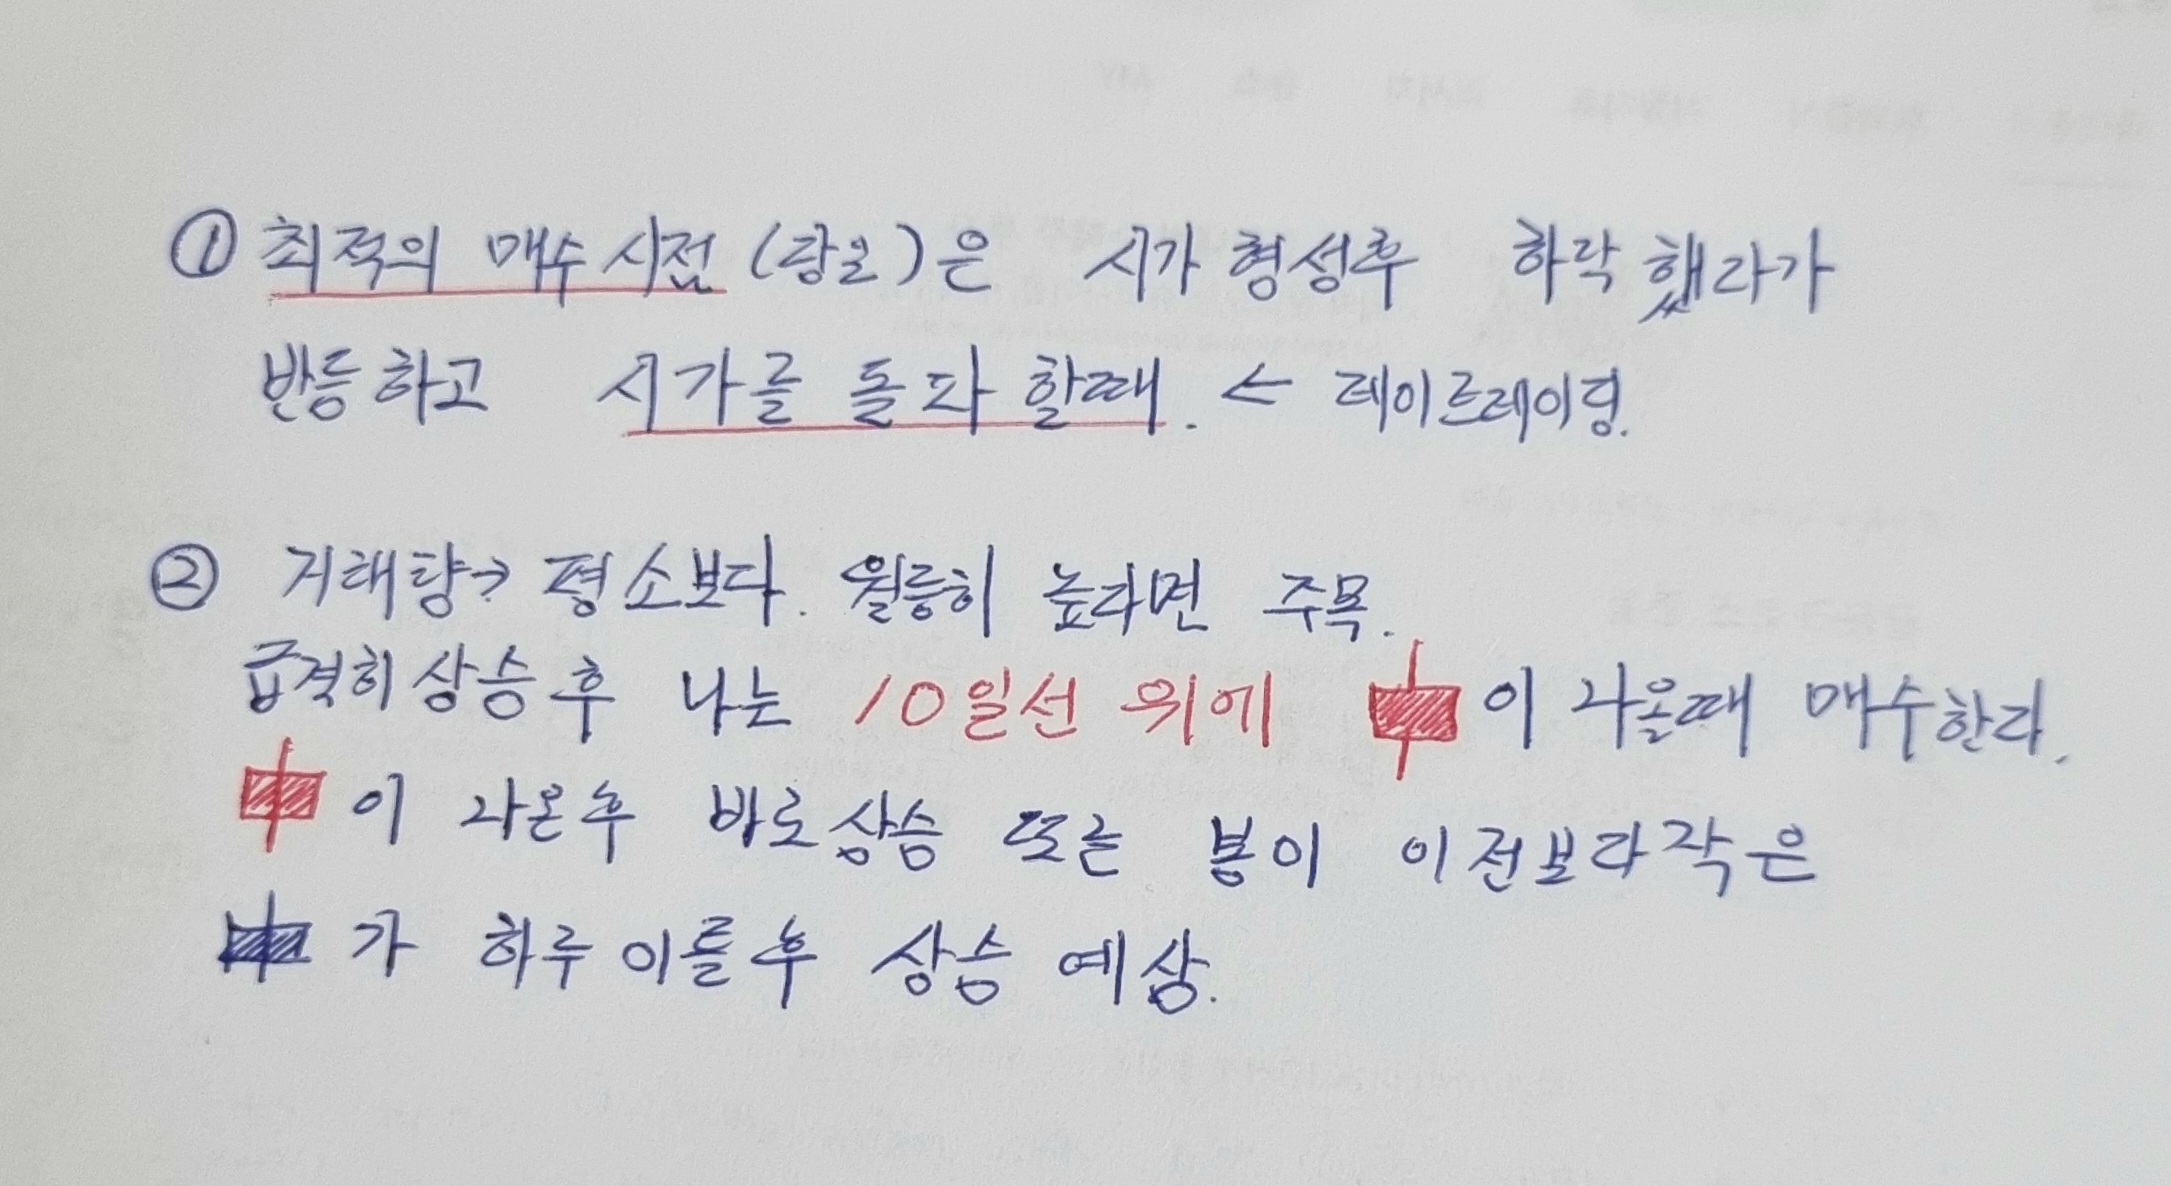 ① 최적의 매수시점 (당일)은 시가 형성후 하락 했다가
반등하고 시가를 돌파 할때. ← 데이트레이딩.
② 거래량→ 평소보다. 월등히 높다면 주목.
급격히 상승 후 나는 10일선 위에 이 나올때 매수한다.
이 나온후 바로 상승 또는 봉이 이전보다 작은
가 하루 이틀 후 상승 예상.